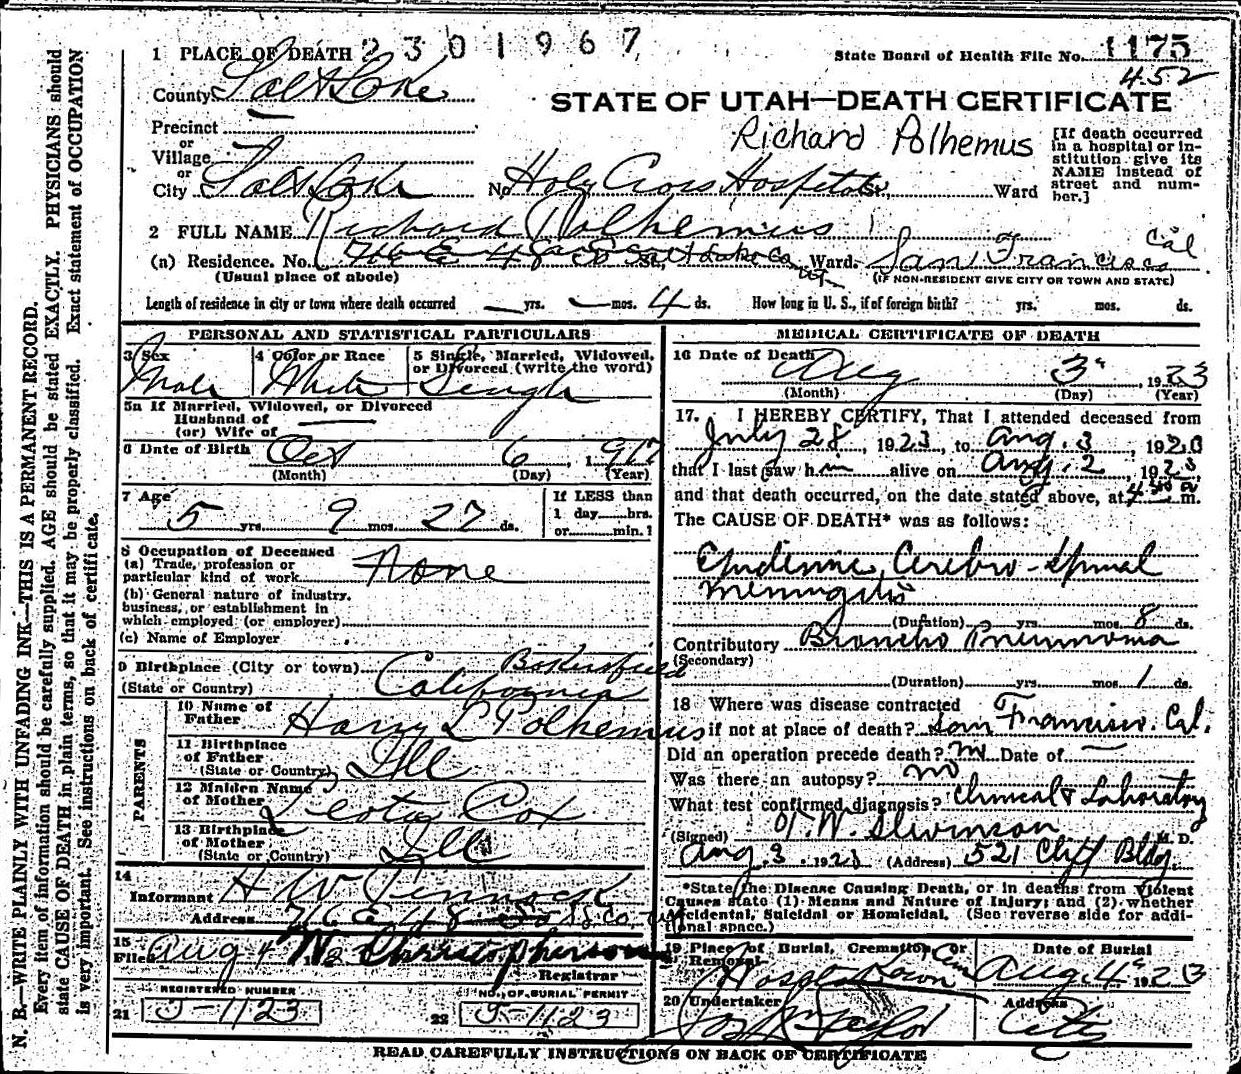 1 PLACE OF DEATH 2301967
State Board of Health File No. 1175
452
County Salt Lake
STATE OF UTAH—DEATH CERTIFICATE
Precinct
or
Village
or
City Salt Lake No. Holy Cross Hospital St., Ward
Richard Polhemus
[If death occurred
in a hospital or in-
stitution give its
NAME instead of
street and num-
ber.]
2 FULL NAME Richard Polhemus
(a) Residence. No. 746 E 48 So St., Salt Lake Co Ut Ward. San Francisco Cal
(Usual place of abode)
(IF NON-RESIDENT GIVE CITY OR TOWN AND STATE)
Length of residence in city or town where death occurred — yrs. — mos. 4 ds. How long in U. S., if of foreign birth? yrs. mos. ds.
PERSONAL AND STATISTICAL PARTICULARS
3 Sex Male
4 Color or Race White
5 Single, Married, Widowed,
or Divorced (write the word)
Single
5a If Married, Widowed, or Divorced
Husband of
(or) Wife of —
6 Date of Birth Oct 6, 1917
(Month) (Day) (Year)
7 Age 5 yrs. 9 mos. 27 ds.
If LESS than
1 day hrs.
or min.?
8 Occupation of Deceased
(a) Trade, profession or
particular kind of work None
(b) General nature of industry,
business, or establishment in
which employed (or employer)
(c) Name of Employer
9 Birthplace (City or town) Bakersfield
(State or Country) California
PARENTS
10 Name of
Father Harry L Polhemus
11 Birthplace
of Father
(State or Country) Ill
12 Maiden Name
of Mother Leota Cox
13 Birthplace
of Mother
(State or Country) Ill
14
Informant H W Pennock
Address 746 E 48 So S.L. Co Ut
15
Filed Aug 4 Christopherson
Registrar
REGISTERED NUMBER
21 J-1123
NO. OF BURIAL PERMIT
22 J-1123
MEDICAL CERTIFICATE OF DEATH
16 Date of Death Aug 3, 1923
(Month) (Day) (Year)
17. I HEREBY CERTIFY, That I attended deceased from
July 28, 1923, to Aug. 3, 1923
that I last saw him alive on Aug. 2, 1923
and that death occurred, on the date stated above, at 4 m.
The CAUSE OF DEATH* was as follows:
Epidemic Cerebro-Spinal
Meningitis
(Duration) yrs. mos. 8 ds.
Contributory Broncho Pneumonia
(Secondary)
(Duration) yrs. mos. 1 ds.
18 Where was disease contracted
if not at place of death? San Francisco. Cal.
Did an operation precede death? no Date of —
Was there an autopsy? no
What test confirmed diagnosis? Clinical & Laboratory
(Signed) W. Stevenson M. D.
Aug 3, 1923 (Address) 521 Clift Bldg.
*State the Disease Causing Death, or in deaths from Violent
Causes state (1) Means and Nature of Injury; and (2) whether
Accidental, Suicidal or Homicidal. (See reverse side for addi-
tional space.)
19 Place of Burial, Cremation, or
Removal Lawn Cem
Date of Burial
Aug. 4 1923
20 Undertaker Jos Taylor
Address City
READ CAREFULLY INSTRUCTIONS ON BACK OF CERTIFICATE
N. B.—WRITE PLAINLY WITH UNFADING INK—THIS IS A PERMANENT RECORD.
Every item of information should be carefully supplied. AGE should be stated EXACTLY. PHYSICIANS should
state CAUSE OF DEATH in plain terms, so that it may be properly classified. Exact statement of OCCUPATION
is very important. See instructions on back of certificate.